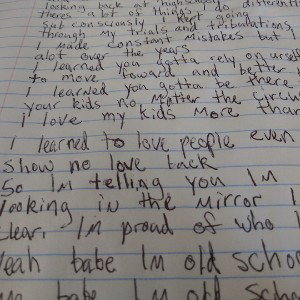 looking back at highschool
theres a lot I'd do different
Subconsciously I kept going
through my trials and tribulations
I made constant mistakes but
alot over the years
I learned you gotta rely on urself
to move foward and better
I learned you gotta be there
your kids no matter the circum
i love my kids more than
I learned to love people even
show no love back
So Im telling you Im
looking in the mirror I
clear, I'm proud of who I
yeah babe Im old schoo
babe Im old scho